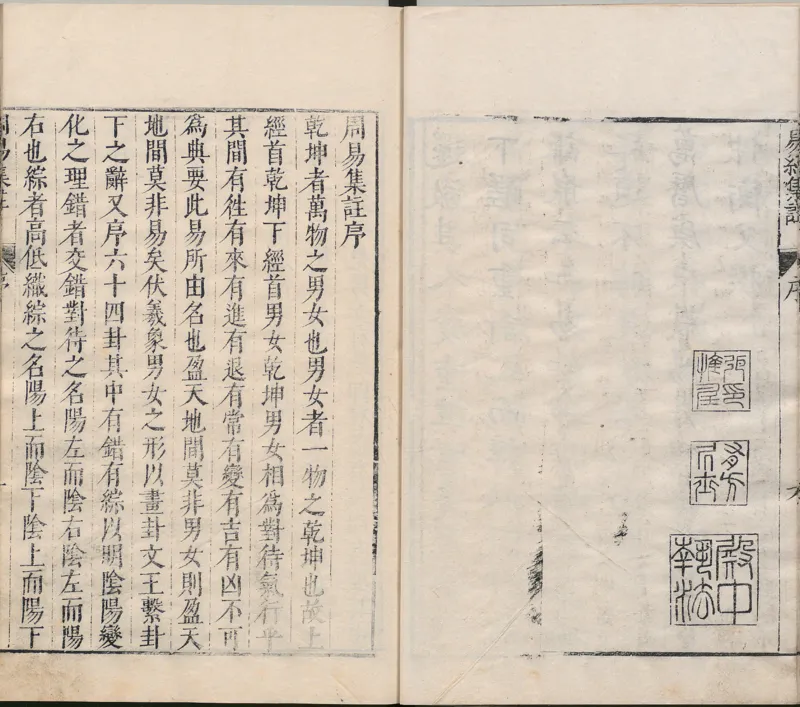 易經集註
序
殿中
執法
周易集註序
乾坤者萬物之男女也男女者一物之乾坤也故上
經首乾坤下經首男女乾坤男女相為對待氣行乎
其間有徃有來有進有退有常有變有吉有凶不可
為典要此易所由名也盈天地間莫非男女則盈天
地間莫非易矣伏羲象男女之形以畫卦文王繫卦
下之辭又序六十四卦其中有錯有綜以明陰陽變
化之理錯者交錯對待之名陽左而陰右陰左而陽
右也綜者高低織綜之名陽上而陰下陰上而陽下
周易集註
序
一